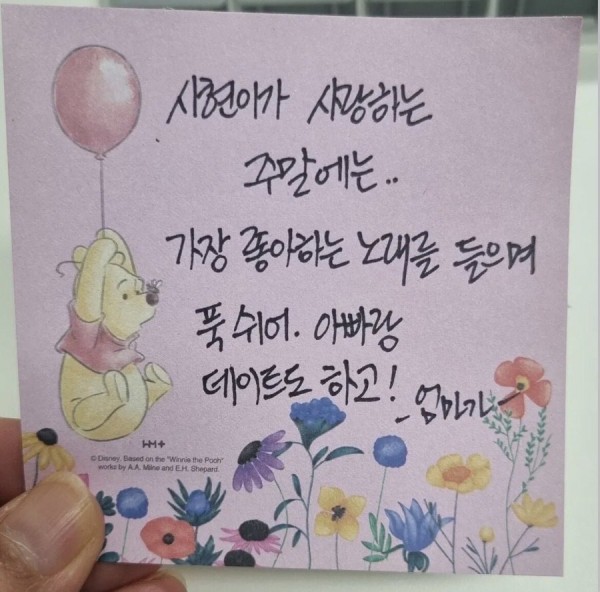 시현이가 사랑하는
주말에는..
가장 좋아하는 노래를 들으며
푹 쉬어. 아빠랑
데이트도 하고!
- 엄마가 -
HM+
© Disney. Based on the "Winnie the Pooh"
works by A.A. Milne and E.H. Shepard.